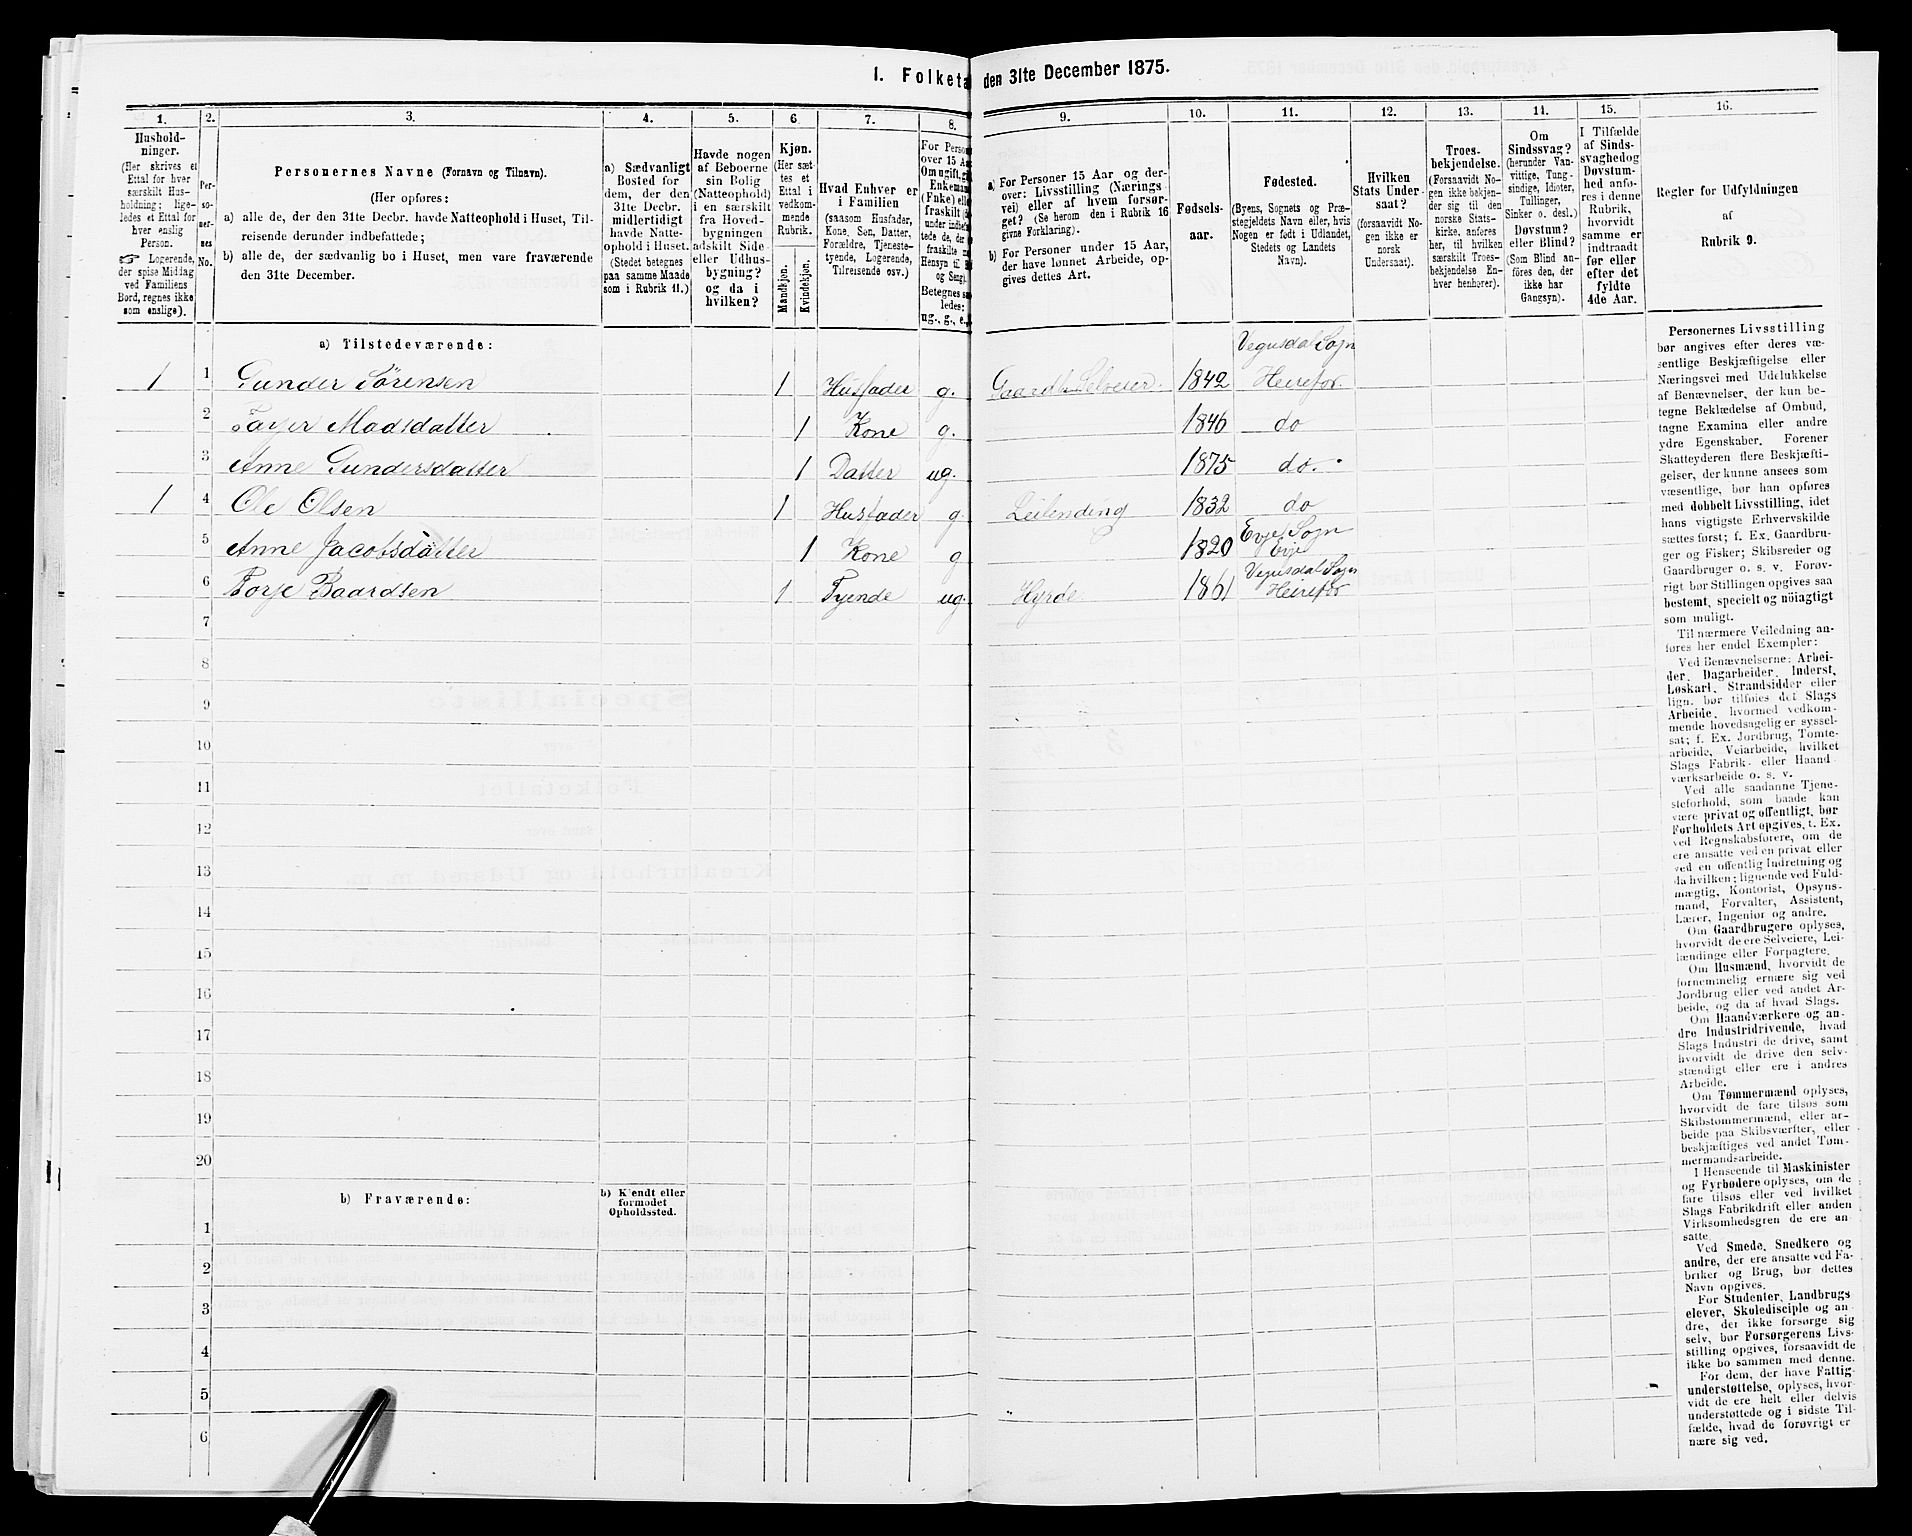 1. Folketa den 31te December 1875.
1. 2. 3. 4. 5. 6. 7. 8. 9. 10. 11. 12. 13. 14. 15. 16.
Hushold-
ninger.
(Her skrives et
Ettal for hver
særskilt Hus-
holdning; lige-
ledes et Ettal for
hver enslig
Person.
☞ Logerende,
der spise Middag
ved Familiens
Bord, regnes ikke
som enslige).
Per-
so-
ner-
nes
No.
Personernes Navne (Fornavn og Tilnavn).
(Her opføres:
a) alle de, der den 31te Decbr. havde Natteophold i Huset, Til-
reisende derunder indbefattede;
b) alle de, der sædvanlig bo i Huset, men vare fraværende
den 31te December.
a) Sædvanligt
Bosted for
dem, der den
31te Decbr.
midlertidigt
havde Natte-
ophold i Huset.
(Stedet betegnes
paa samme Maade
som i Rubrik 11.)
Havde nogen
af Beboerne
sin Bolig
(Natteophold)
i en særskilt
fra Hoved-
bygningen
adskilt Side-
eller Udhus-
bygning?
og da i
hvilken?
Kjøn.
(Her sæt-
tes et
Ettal i
vedkom-
mende
Rubrik.
Mandkjøn.
Kvindekjøn.
Hvad Enhver er
i Familien
(saasom Husfader,
Kone, Søn, Datter,
Forældre, Tjeneste-
tyende, Logerende,
Tilreisende osv.)
For Person
over 15 Aa
Om ugift, gi
Enkeman
(Enke) elle
fraskilt
under indbe
tede de, der
fraskilte
Hensyn til B
og Seng)
Betegnes sa
ledes:
ug., g., e.,
a) For Personer 15 Aar og der-
over: Livsstilling (Nærings-
vei) eller af hvem forsør-
get? (Se herom den i Rubrik 16
givne Forklaring).
b) For Personer under 15 Aar,
der have lønnet Arbeide, op-
gives dettes Art.
Fødsels-
aar.
Fødested.
(Byens, Sognets og Præ-
stegjeldets Navn eller, hvis
Nogen er født i Udlandet,
Stedets og Landets
Navn).
Hvilken
Stats Under-
saat?
(forsaavidt No-
gen ikke er
norsk
Undersaat).
Troes-
bekjendelse.
(Forsaavidt No-
gen ikke bekjen-
der sig til den
norske Stats-
kirke, anføres
her, til hvilken
særskilt Troes-
bekjendelse En-
hver henhører).
Om
Sindssvag?
(herunder Van-
vittige, Tung-
sindige, Idioter,
Tullinger,
Sinker o. desl.)
Døvstum?
eller Blind?
(Som Blind an-
føres den, der
ikke har
Gangsyn).
I Tilfælde
af Sinds-
svaghed og
Døvstum-
hed anfø-
res i denne
Rubrik,
hvorvidt
samme er
indtraadt
før eller
efter det
fyldte
4de Aar.
Regler for Udfyldningen
af
Rubrik 9.
a) Tilstedeværende:
Vegusdal Sogn
1 1 Gunder Sørensen 1 Husfader g. Gaardb. Selveier. 1842 Heirefos.
2 Tayer Madsdatter 1 Kone g. 1846 do
3 Anne Gundersdatter 1 Datter ug. 1875 do.
1 4 Ole Olsen 1 Husfader g Leilending 1832 do
Evje Sogn
5 Anne Jacobsdatter 1 Kone g 1820 Evje
Vegusdal Sogn
6 Torje Baardsen 1 Tyende ug. Hyrde 1861 Heirefos
7
8
9
10
11
12
13
14
15
16
17
18
19
20
b) Fraværende:
b) Kjendt eller
formodet
Opholdssted.
1
2
3
4
5
6
Personernes Livsstilling
bør angives efter deres væ-
sentlige Beskjæftigelse eller
Næringsvei med Udelukkelse
af Benævnelser, der kun be-
tegne Beklædelse af Ombud,
tagne Examina eller andre
ydre Egenskaber. Forener
Skatteyderen flere Beskjæfti-
gelser, der kunne ansees som
væsentlige, bør han opføres
med dobbelt Livsstilling, idet
hans vigtigste Erhvervskilde
sættes først; f. Ex. Gaardbru-
ger og Fisker; Skibsreder og
Gaardbruger o. s. v. Forøv-
rigt bør Stillingen opgives saa
bestemt, specielt og nøiagtigt
som muligt.
Til nærmere Veiledning an-
føres her endel Exempler:
Ved Benævnelserne: Arbei-
der, Dagarbeider, Inderst,
Løskarl, Strandsidder eller
lign. bør tilføies det Slags
Arbeide, hvormed vedkom-
mende hovedsagelig er syssel-
sat; f. Ex. Jordbrug, Tomte-
arbeide, Veiarbeide, hvilket
Slags Fabrik- eller Haand-
værksarbeide o. s. v.
Ved alle saadanne Tjene-
steforhold, som baade kan
være privat og offentligt, bør
Forholdets Art opgives, t. Ex.
ved Regnskabsførere, om de
ere ansatte ved en privat eller
ved en offentlig Indretning og
da hvilken; lignende ved Fuld-
mægtig, Kontorist, Opsyns-
mand, Forvalter, Assistent,
Lærer, Ingeniør og andre.
Om Gaardbrugere oplyses,
hvorvidt de ere Selveiere, Lei-
lændinge eller Forpagtere.
Om Husmænd, hvorvidt de
fornemmelig ernære sig ved
Jordbrug eller ved andet Ar-
beide, og da af hvad Slags.
Om Haandværkere og an-
dre Industridrivende, hvad
Slags Industri de drive, samt
hvorvidt de drive den selv-
stændigt eller ere i andres
Arbeide.
Om Tømmermænd oplyses,
hvorvidt de fare tilsøs som
Skibstømmermænd, eller ar-
beide paa Skibsværfter, eller
beskjæftiges ved andet Tøm-
mermandsarbeide.
I Henseende til Maskinister
og Fyrbødere oplyses, om de
fare tilsøs eller ved hvilket
Slags Fabrikdrift eller anden
Virksomhedsgren de ere an-
satte.
Ved Smede, Snedkere og
andre, der ere ansatte ved Fa-
briker og Brug, bør dettes
Navn opgives.
For Studenter, Landbrugs-
elever, Skoledisciple og an-
dre, der ikke forsørge sig
selv, bør Forsørgerens Livs-
stilling opgives, forsaavidt de
ikke bo sammen med denne.
For dem, der have Fattig-
understøttelse, oplyses, hvor-
vidt de ere helt eller delvis
understøttede og i sidste Til-
fælde, hvad de forøvrigt er-
nære sig ved.